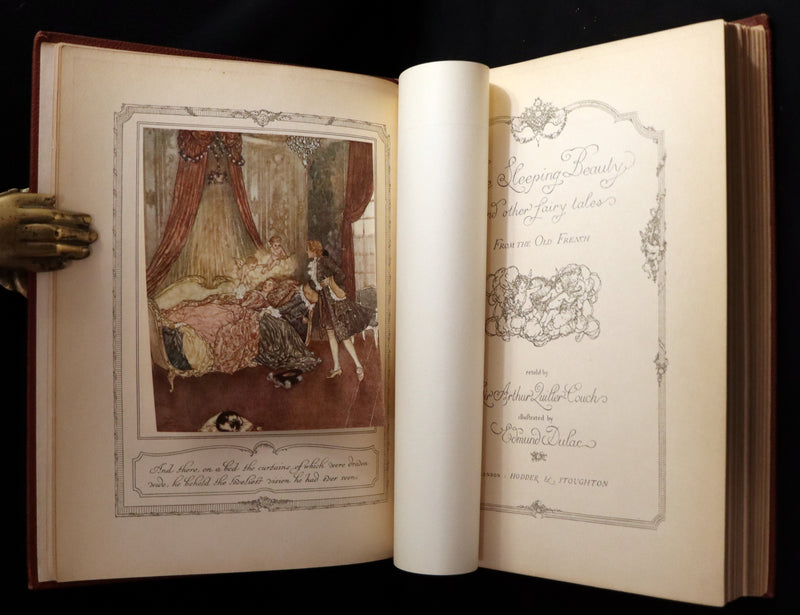 And there, on a bed the curtains of which were drawn
wide, he beheld the loveliest vision he had ever seen.
Sleeping Beauty
nd other fairy tales
FROM THE OLD FRENCH
retold by
Sir Arthur Quiller-Couch
illustrated by
Edmund Dulac
LONDON : HODDER & STOUGHTON